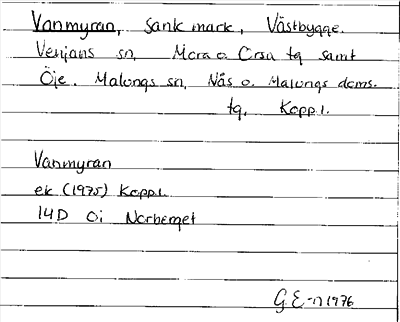 Vanmyran, Sank mark, Västbygge.
Venjans sn, Mora o. Orsa tg samt
Öje. Malungs sn, Nås o. Malungs doms.
tg, Kopp.l.
Vanmyran
ek (1975) Kopp.l.
14D 0i Norberget
G.E-n 1976